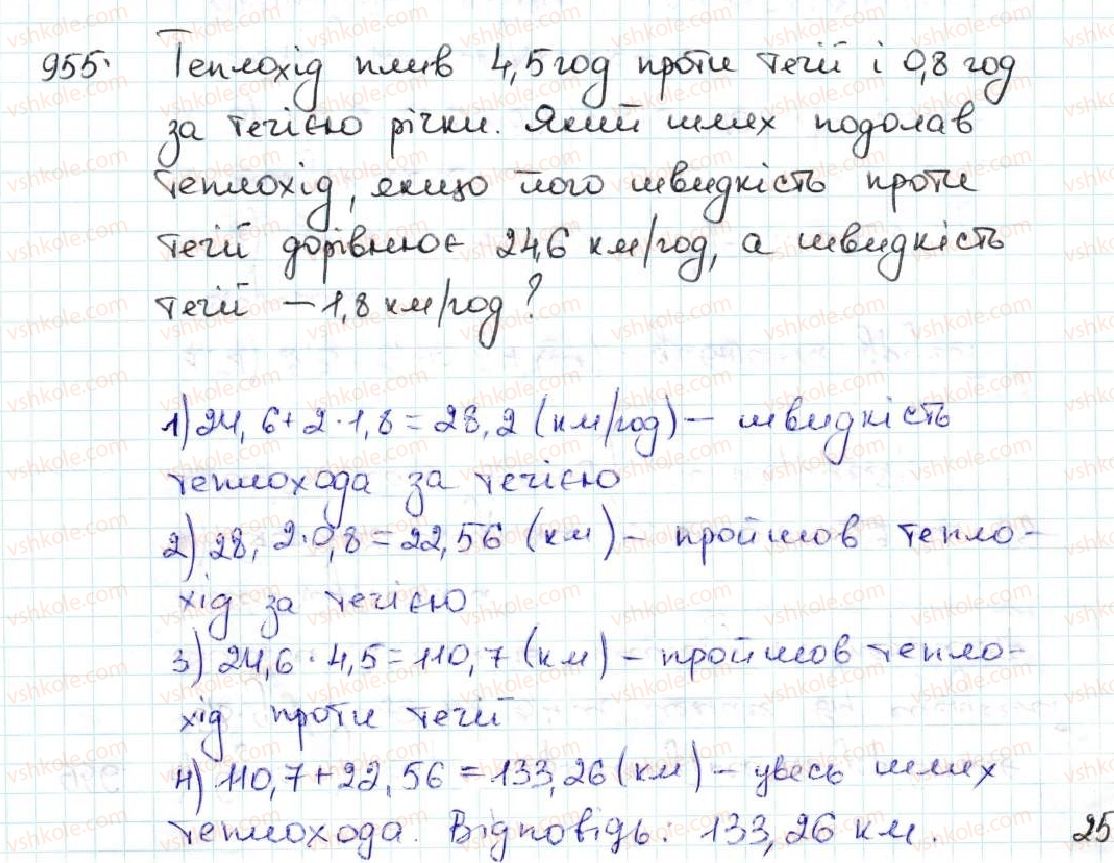 955. Теплохід плив 4,5 год проти течії і 0,8 год
за течією річки. Який шлях подолав
теплохід, якщо його швидкість проти
течії дорівнює 24,6 км/год, а швидкість
течії – 1,8 км/год?
1) 24,6+2·1,8=28,2 (км/год) – швидкість
теплохода за течією
2) 28,2·0,8=22,56 (км) – пройшов тепло-
хід за течією
3) 24,6·4,5=110,7 (км) – пройшов тепло-
хід проти течії
4) 110,7+22,56=133,26 (км) – увесь шлях
теплохода. Відповідь: 133,26 км.
25
vshkole.com